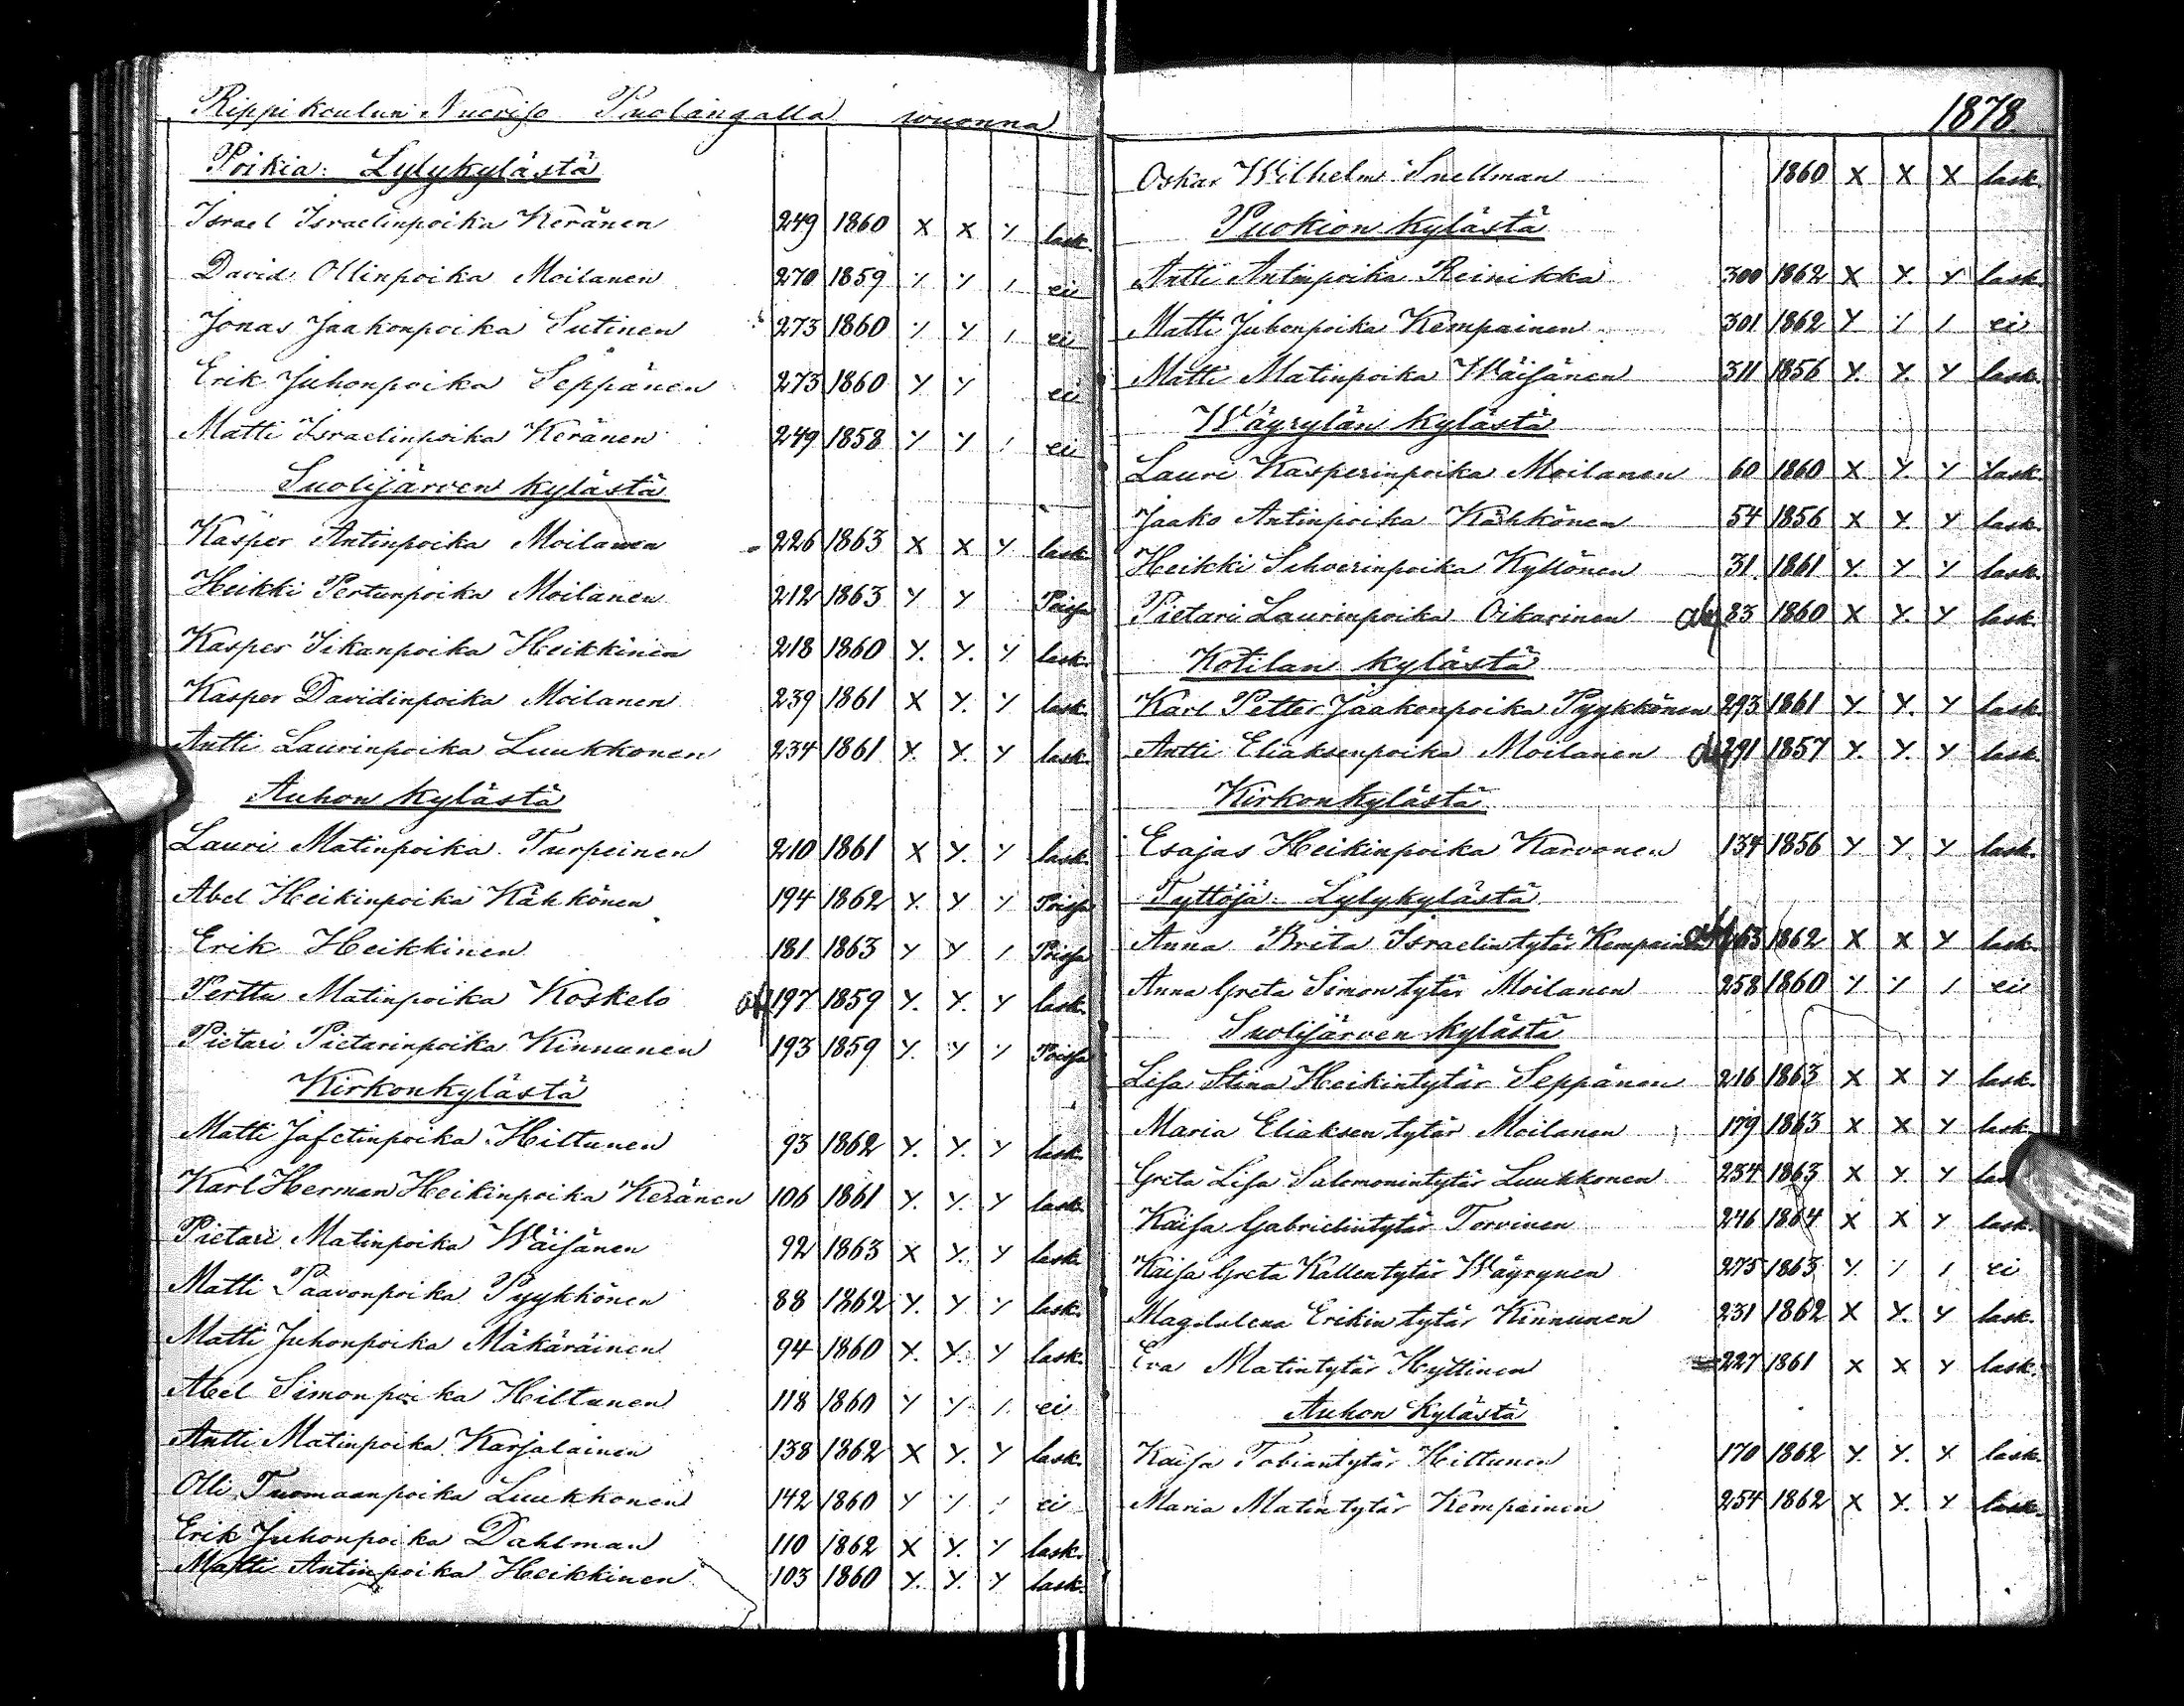 Rippikoulun Nuoriso Puolangalla wuonna
Poikia: Lylykylästä
Israel Israelinpoika Keränen 249 1860 X X Y lask.
David Ollinpoika Moilanen 270 1859 Y Y / ei
Jonas Jaakonpoika Sutinen 273 1860 Y Y / ei
Erik Juhonpoika Seppänen 273 1860 Y Y ei
Matti Israelinpoika Keränen 249 1858 Y Y / ei
Suolijärven kylästä
Kasper Antinpoika Moilanen 226 1863 X X Y lask.
Heikki Pertunpoika Moilanen 212 1863 Y Y Poissa
Kasper Iikanpoika Heikkinen 218 1860 Y. Y. Y lask.
Kasper Davidinpoika Moilanen 239 1861 X Y. Y lask.
Antti Laurinpoika Luukkonen 234 1861 Y. Y. Y lask.
Auhon kylästä
Lauri Matinpoika Turpeinen 210 1861 X Y. Y lask.
Abel Heikinpoika Kähkönen 194 1862 Y. Y Y Poissa
Erik Heikkinen 181 1863 Y Y / Poissa
Perttu Matinpoika Koskelo 197 1859 Y. Y. Y lask.
Pietari Pietarinpoika Kinnunen 193 1859 Y. Y Y Poissa
Kirkonkylästä
Matti Jafetinpoika Hiltunen 93 1862 Y. Y. Y lask.
Karl Herman Heikinpoika Keränen 106 1861 Y. Y. Y lask.
Pietari Matinpoika Wäisänen 92 1863 X Y. Y lask.
Matti Paavonpoika Pyykkönen 88 1862 Y. Y Y lask.
Matti Juhonpoika Mäkäräinen 94 1860 Y. Y. Y lask.
Abel Simonpoika Hiltunen 118 1860 Y Y / ei
Antti Matinpoika Karjalainen 138 1862 X Y. Y lask.
Olli Tuomaanpoika Luukkonen 142 1860 Y Y / ei
Erik Juhonpoika Dahlman 110 1862 X Y. Y lask.
Matti Antinpoika Heikkinen 103 1860 Y. Y. Y lask.
1878
Oskar Wilhelm Snellman 1860 X X X lask.
Puokion kylästä
Antti Antinpoika Reinikka 300 1862 X Y. Y lask.
Matti Juhonpoika Kempainen 301 1862 Y Y / ei
Matti Matinpoika Wäisänen 311 1856 Y. Y. Y lask.
Wäyrylän kylästä
Lauri Kasperinpoika Moilanen 60 1860 X Y. Y lask.
Jaako Antinpoika Kähkönen 54 1856 X Y. Y lask.
Heikki Sihverinpoika Kyllönen 31 1861 Y. Y Y lask.
Pietari Laurinpoika Oikarinen 83 1860 X Y. Y lask.
Kotilan kylästä
Karl Petter Jaakonpoika Pyykkönen 293 1861 Y. Y. Y lask.
Antti Eliaksenpoika Moilanen 291 1857 Y. Y. Y lask.
Kirkonkylästä
Esajas Heikinpoika Karvonen 134 1856 Y Y. Y lask.
Tyttöjä: Lylykylästä
Anna Brita Israelintytär Kempainen 1862 X X Y lask.
Anna Greta Simontytär Moilanen 258 1860 Y Y / ei
Suolijärven kylästä
Lisa Stina Heikintytär Seppänen 216 1863 X X Y lask.
Maria Eliaksentytär Moilanen 179 1863 X X Y lask.
Greta Lisa Salomonintytär Luukkonen 234 1863 X Y. Y lask
Kaisa Gabrielintytär Torvinen 246 1864 X X Y lask.
Kaisa Greta Kallentytär Wäyrynen 275 1863 Y. Y / ei
Magdalena Erikintytär Kinnunen 231 1862 X Y. Y lask.
Eva Matintytär Hyttinen 227 1861 X X Y lask.
Auhon kylästä
Kaisa Tobiantytär Hiltunen 170 1862 Y. Y. X lask.
Maria Matintytär Kempainen 254 1862 X Y. Y lask.